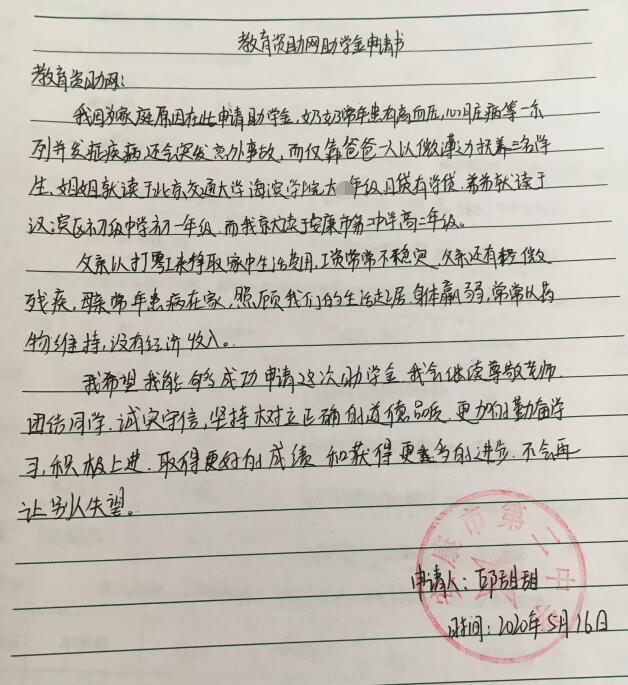 教育资助网助学金申请书
教育资助网:
我因为家庭原因在此申请助学金,奶奶常年患有高血压,心脏病等一系
列并发症疾病还会突发意外事故,而仅靠爸爸一人以微薄力扶养三名学
生、姐姐就读于北京交通大学海滨学院大 年级,且贷有学贷.弟弟就读于
汉滨区初级中学初一年级.而我就读于安康市第二中学高二年级。
父亲以打零工来挣取家中生活费用,工资常常不稳定.父亲还有轻微
残疾,母亲常年患病在家,照顾我们的生活起居.身体羸弱,常常以药
物维持,没有经济收入。
我希望我能够成功申请这次助学金.我会继续尊敬老师.
团结同学.诚实守信,坚持树立正确的道德品质.更加的勤奋学
习,积极上进.取得更好的成绩和获得更多的进步.不会再
让别人失望。
申请人:邱甜甜
时间:2020年5月16日
安康市第二中学